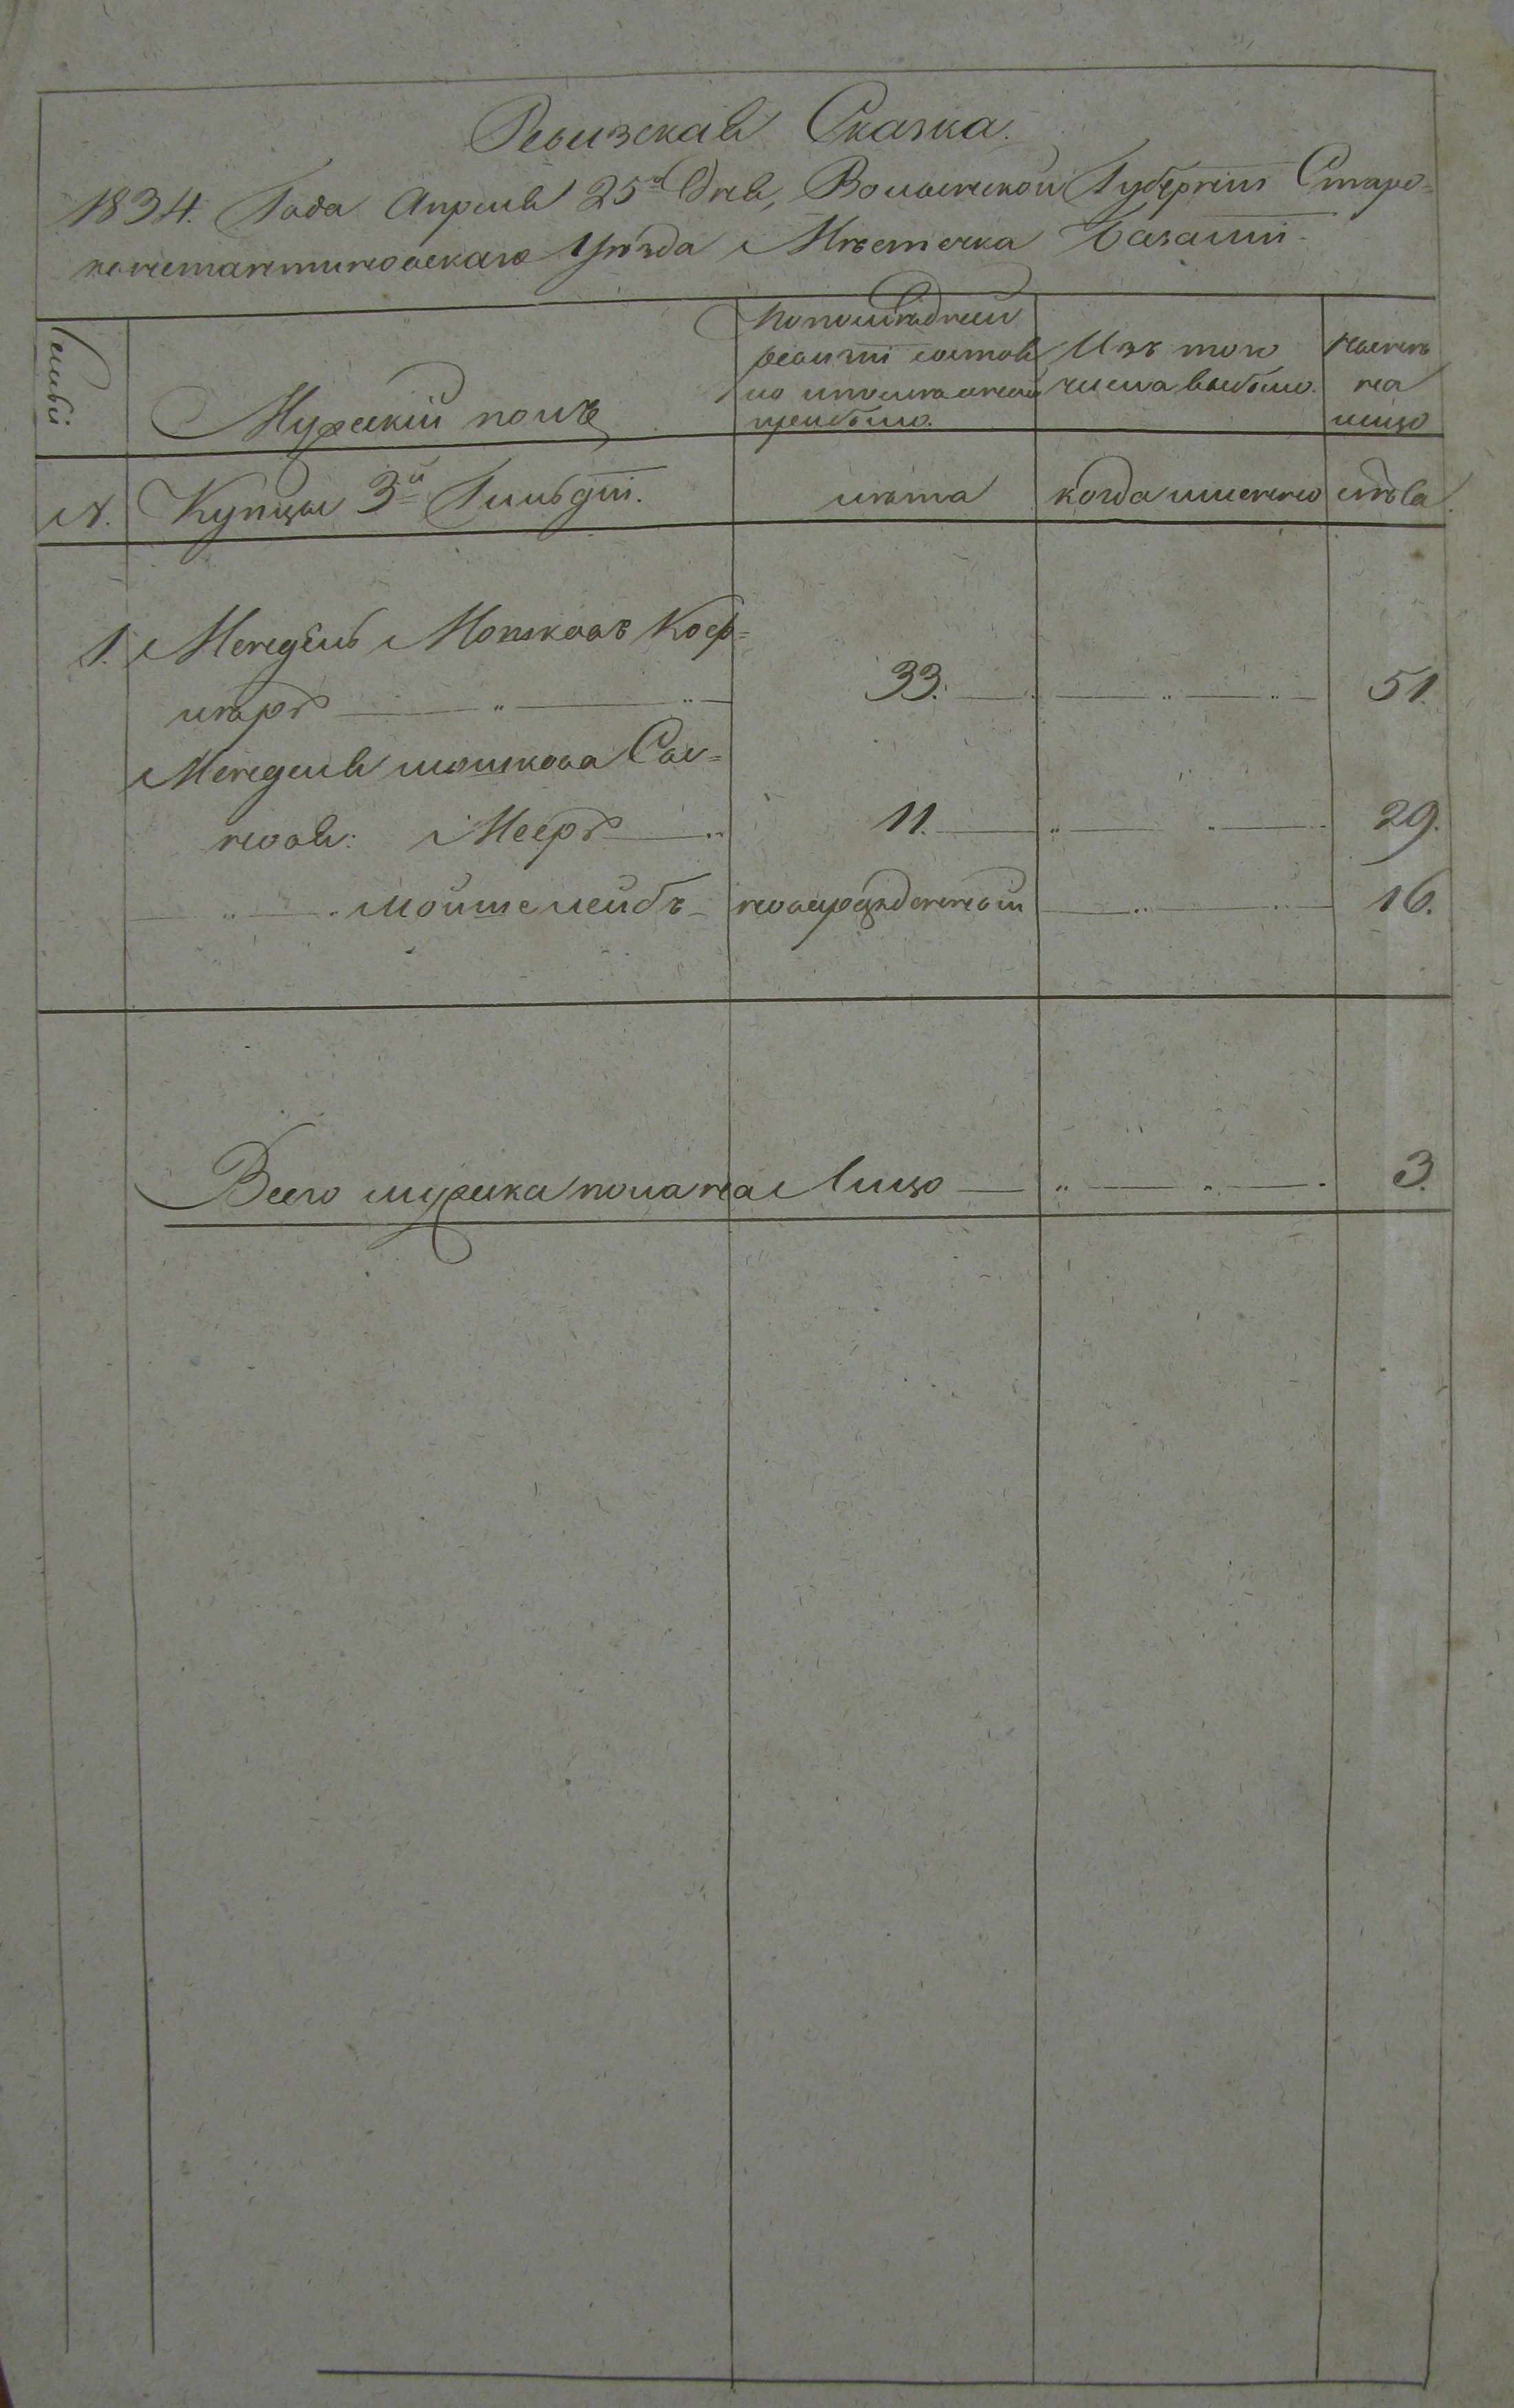 Ревизская Сказка.
1834. Года Апреля 25го Дня, Волынской Губернiи Старо=
константиновскаго Уѣзда Мѣстечка Базалiи.
Семьи
Мужескiй полъ
По послѣдней
ревизiи состоя
ло и послѣ оной
прибыло.
Изъ того
числа выбыло.
Нынѣ
на
лицо
№.
Купцы 3й Гильдiи.
лѣта
когда именно
лѣта.
1. Мендель Мошковъ Коф=
лѣръ 33. 51.
Менделя мошкова Сы=
новья: Мееръ 11. 29.
мойшелейбъ новорожденной 16.
Всего мужеска пола на Лицо 3.